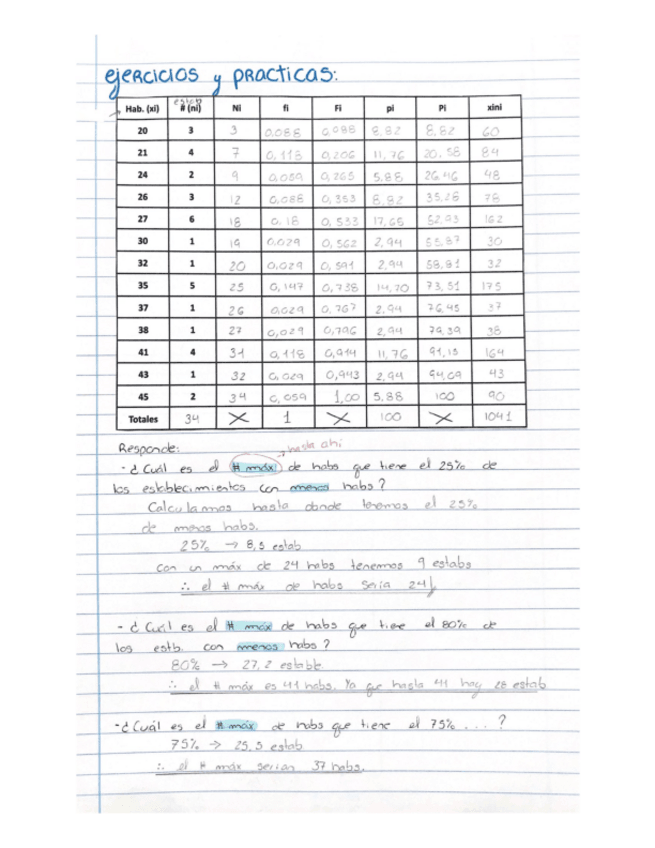 ejercicios y practicas:
Hab. (xi) # (ni) Ni fi Fi pi Pi xini
20 3 3 0,088 0,088 8,82 8,82 60
21 4 7 0,118 0,206 11,76 20,58 84
24 2 9 0,059 0,265 5,88 26,46 48
26 3 12 0,088 0,353 8,82 35,28 78
27 6 18 0,18 0,533 17,65 52,93 162
30 1 19 0,029 0,562 2,94 55,87 30
32 1 20 0,029 0,591 2,94 58,81 32
35 5 25 0,147 0,738 14,70 73,51 175
37 1 26 0,029 0,767 2,94 76,45 37
38 1 27 0,029 0,796 2,94 79,39 38
41 4 31 0,118 0,914 11,76 91,15 164
43 1 32 0,029 0,943 2,94 94,09 43
45 2 34 0,059 1,00 5,88 100 90
Totales 34 X 1 X 100 X 1041
Responde: → hasta ahi
- ¿Cuál es el # máx de habs que tiene el 25% de
los establecimientos con menos habs?
Calculamos hasta donde tenemos el 25%
de menos habs.
25% → 8,5 estab
Con un máx de 24 habs tenemos 9 estabs
∴ el # máx de habs seria 24
- ¿Cuál es el # máx de habs que tiene el 80% de
los estb. con menos habs?
80% → 27,2 estable.
∴ el # máx es 41 habs. Ya que hasta 41 hay 28 estab
- ¿Cuál es el # máx de habs que tiene el 75% ... ?
75% → 25,5 estab
∴ el # máx serian 37 habs.